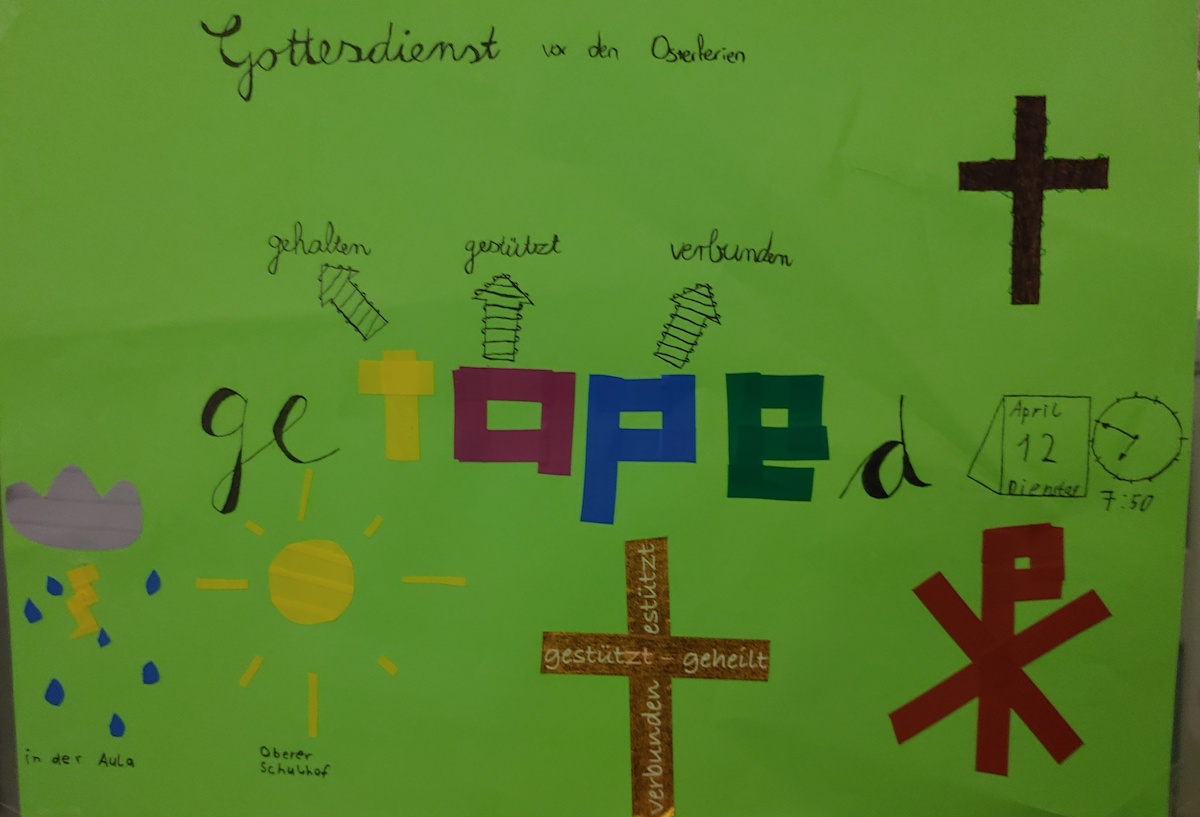 Gottesdienst vor den Osterferien
gehalten gestützt verbunden
getaped
April
12
Dienstag
7:50
estützt
gestützt – geheilt
verbunden
in der Aula
Oberer
Schulhof